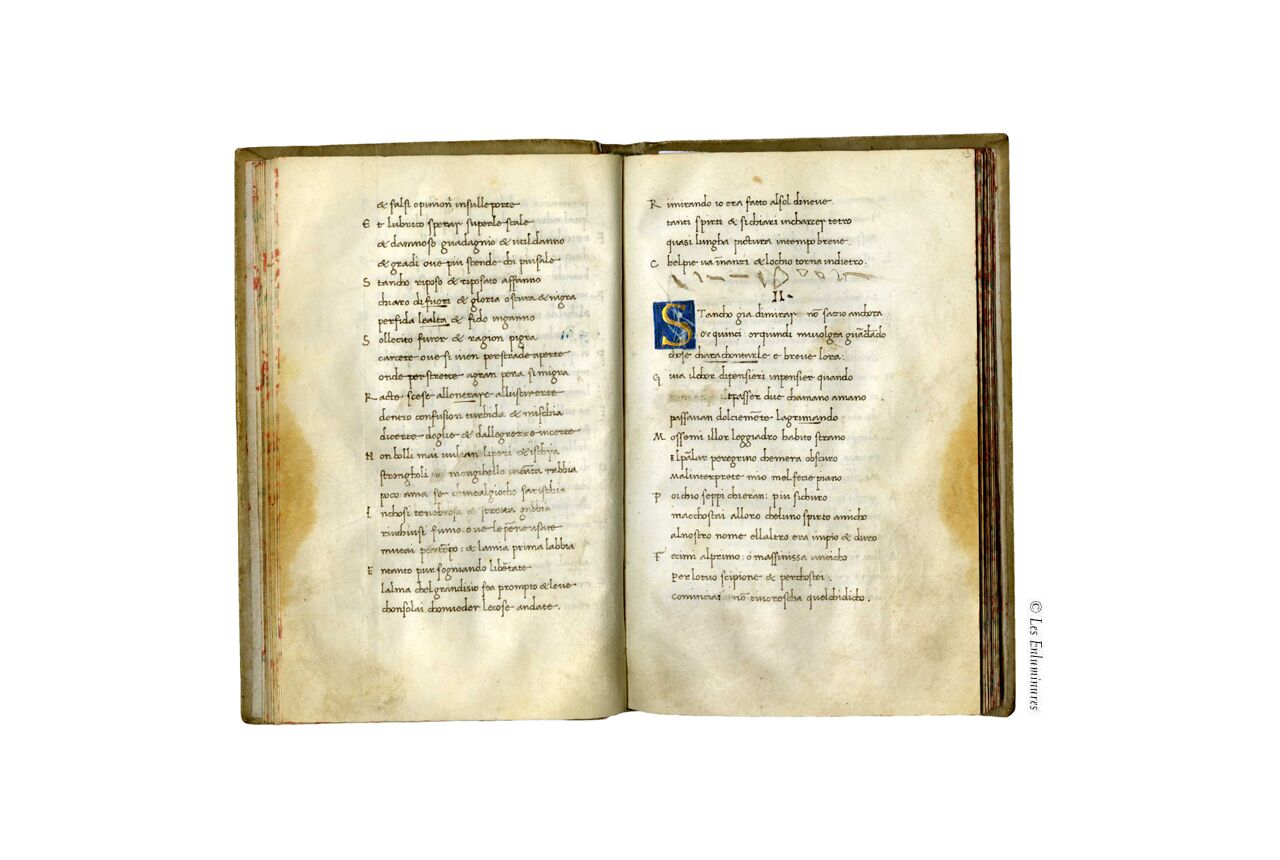 & falsi opinion̄ insulle porte
E t lubrico sperar superle scale
& damnoso guadagnio & util danno
& gradi ove piu scende chi piu sale
S tancho riposo & riposato affanno
chiaro di fuori & gloria oscura & nigra
perfida lealta & fido inganno
S ollecito furor & ragion pigra
carcere ove si vien per strade aperte
onde per strette a gran pena si migra
R atte scese allentrare allusir erte
dentro confusion turbida & mischia
di certe doglie & dallegrezze incerte
N on bolli mai vulcan lipari & ischia
strongholi o mongibello in tanta rabbia
poco ama se chintal giocho sarischia
I nchosi tenebrosa & stretta gabbia
rinchiusi fumo ove le penne usate
mutai per tempo : & la mia prima labbia
E ntanto pur sogniando libertate
lalma chel gran disio fea prompto & leve
chonsolai chonveder le cose andate .
13
R imirando io era fatto al sol di neve
tanti spirti & si chiari in charcer tetro
quasi lungha pictura in tempo breve .
C helpie va īnanzi & lochio torna indietro .
II .
S Tancho gia di mirar nō sazio anchora
or quinci : or quindi mi volgea guardādo
chose charachontarle e breve lora :
G iva il chor di pensieri in pensier quando
trasser due chamano amano
passavan dolcemēte lagrimando
M ossemi il lor leggiadro habito strano
El pālar peregrino chemera obscuro
Ma linterprete mio mel fecie piano
P oi chio seppi chi eran : piu sichuro
macchostai alloro chel uno spirto amicho
al nostro nome ellaltro era impio & duro
F ecimi al primo : o massinissa anticho
Per lo tuo scipione & per chostei .
Cominciai nō tincrescha quel chi dicho .
© Les Enluminures